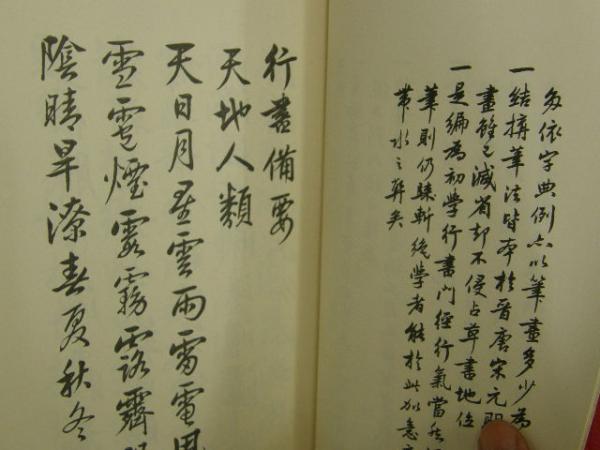 多依字典例六以筆畫多少為
一結搆筆法皆本於晉唐宋元明
畫雖已減省却不侵占草書地位
一是編為初學行書門徑行氣當
筆則仍縣斬絶學者能於此加意
帶水之弊矣
行書備要
天地人類
天日月星雲雨雷電風
雪雹煙霞霧露霽
陰晴旱潦春夏秋冬